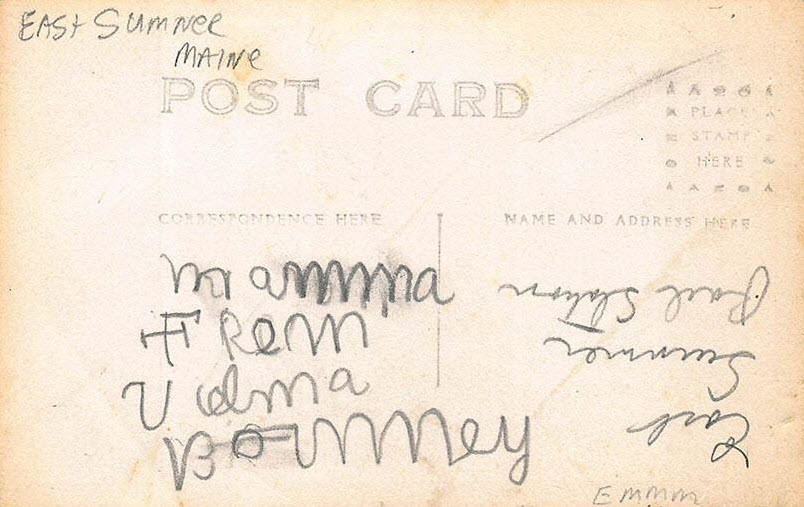 EAST SUMNER
MAINE
POST CARD
PLACE
STAMP
HERE
CORRESPONDENCE HERE
NAME AND ADDRESS HERE
Mamma
FRom
Velma
Bonney
East
Sumner
Rail Station